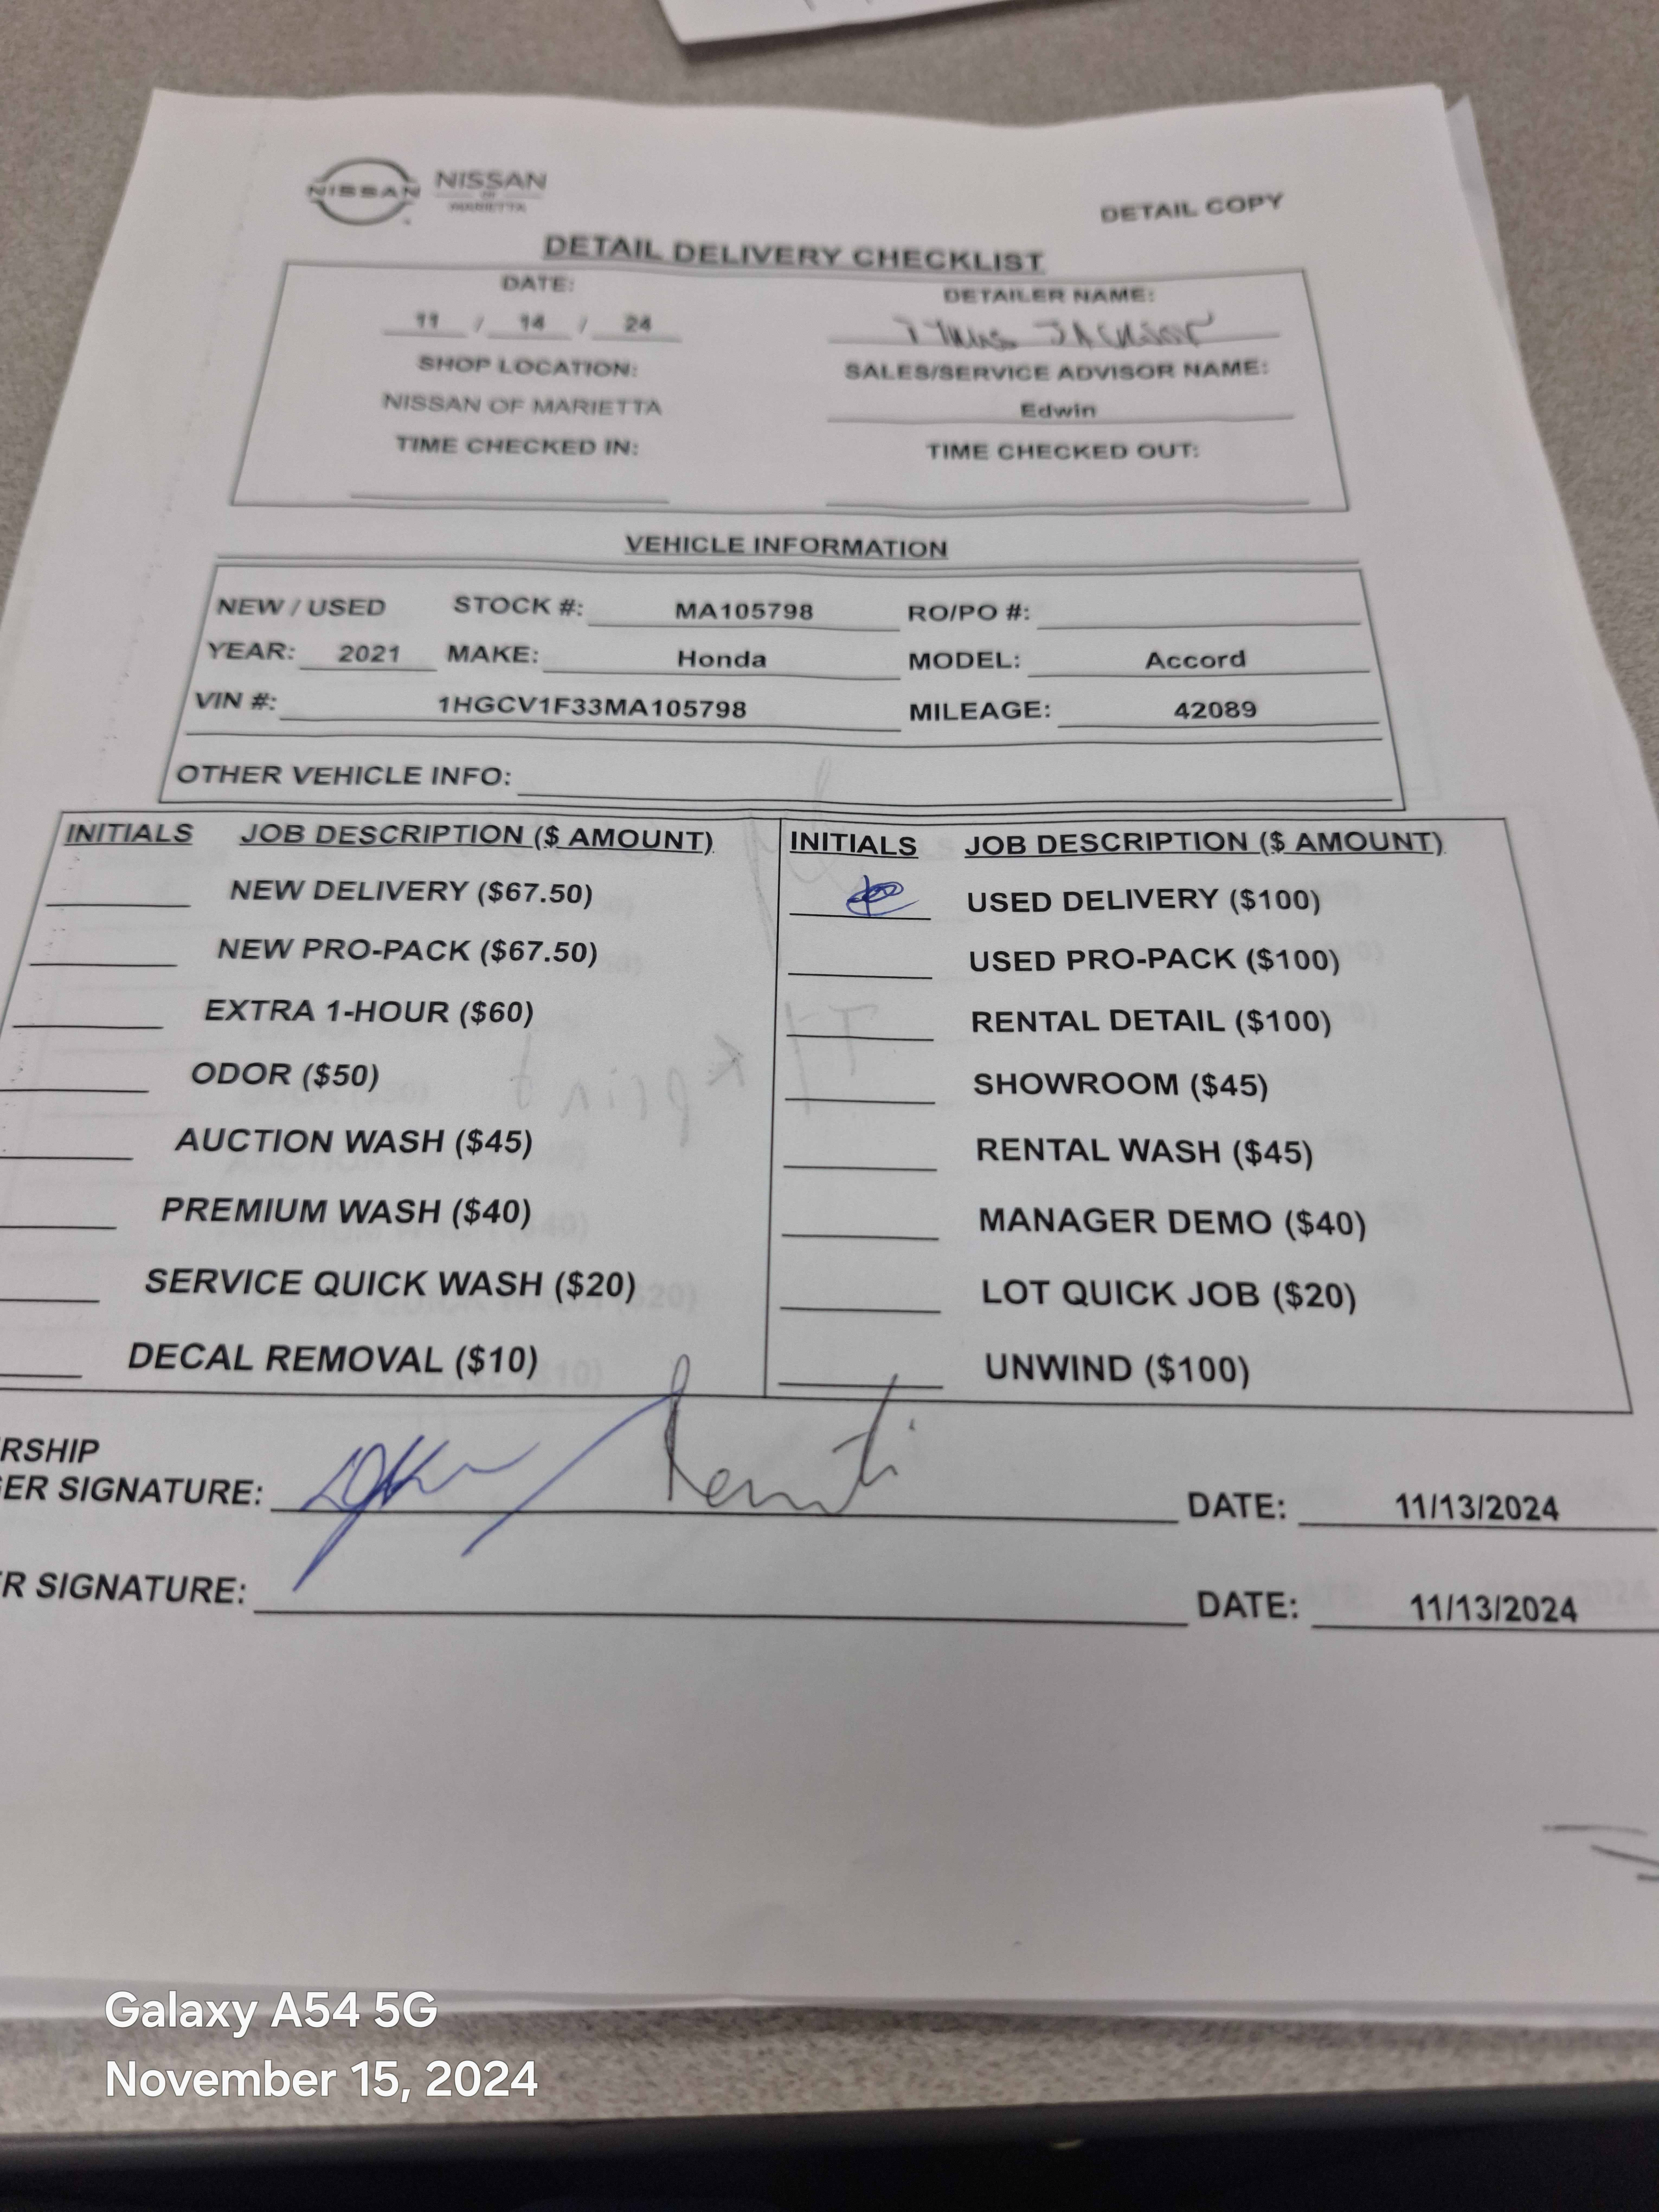 NISSAN NISSAN
OF
MARIETTA
DETAIL COPY
DETAIL DELIVERY CHECKLIST
DATE: DETAILER NAME:
11 / 14 / 24 JACKSON
SHOP LOCATION: SALES/SERVICE ADVISOR NAME:
NISSAN OF MARIETTA Edwin
TIME CHECKED IN: TIME CHECKED OUT:
VEHICLE INFORMATION
NEW / USED STOCK #: MA105798 RO/PO #:
YEAR: 2021 MAKE: Honda MODEL: Accord
VIN #: 1HGCV1F33MA105798 MILEAGE: 42089
OTHER VEHICLE INFO:
INITIALS JOB DESCRIPTION ($ AMOUNT) INITIALS JOB DESCRIPTION ($ AMOUNT)
NEW DELIVERY ($67.50) USED DELIVERY ($100)
NEW PRO-PACK ($67.50) USED PRO-PACK ($100)
EXTRA 1-HOUR ($60) RENTAL DETAIL ($100)
ODOR ($50) SHOWROOM ($45)
AUCTION WASH ($45) RENTAL WASH ($45)
PREMIUM WASH ($40) MANAGER DEMO ($40)
SERVICE QUICK WASH ($20) LOT QUICK JOB ($20)
DECAL REMOVAL ($10) UNWIND ($100)
RSHIP
ER SIGNATURE: DATE: 11/13/2024
R SIGNATURE: DATE: 11/13/2024
Galaxy A54 5G
November 15, 2024